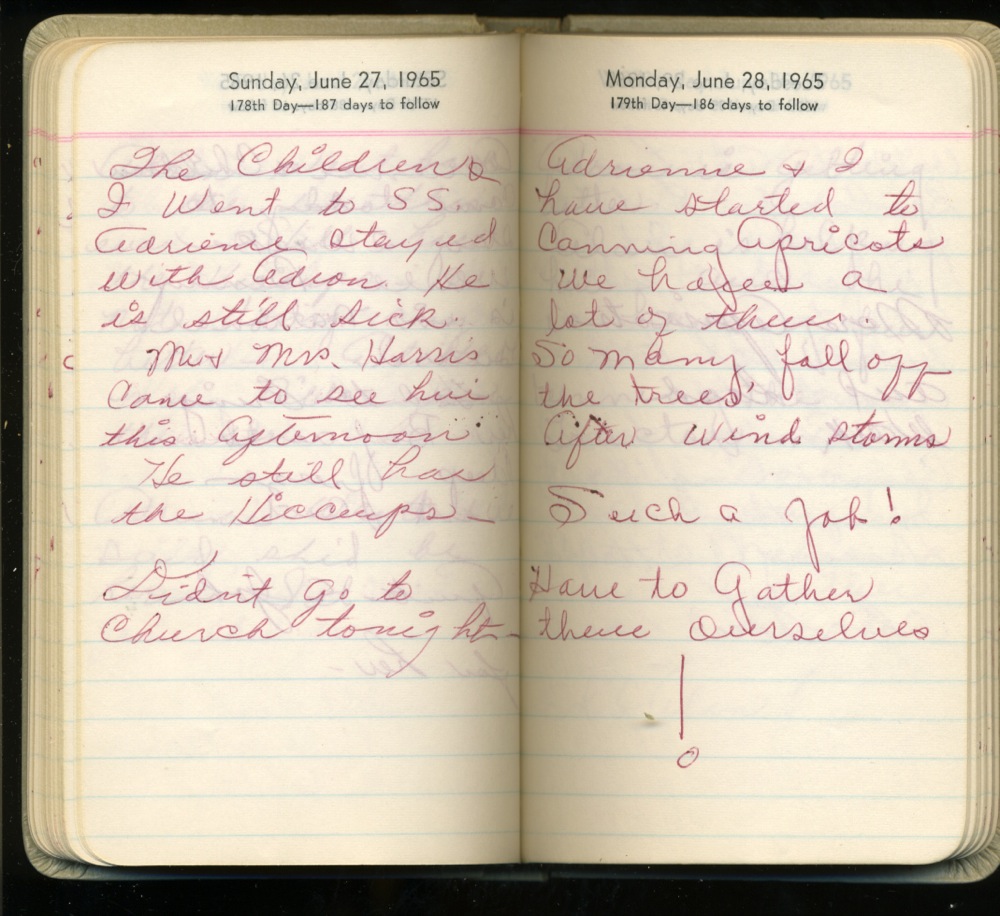 Sunday, June 27, 1965
178th Day—187 days to follow
The Children &
I Went to SS.
Adriene stayed
with Adron. He
is still sick.
Mr & Mrs. Harris
Came to see him
this Afternoon
He still has
the Hiccups—
Didn't go to
Church tonight—
Monday, June 28, 1965
179th Day—186 days to follow
Adrienne & I
have started to
Canning Apricots
We have a
lot of them.
So many fall off
the trees,
After Wind storms
Such a job!
Have to Gather
them Ourselves
!